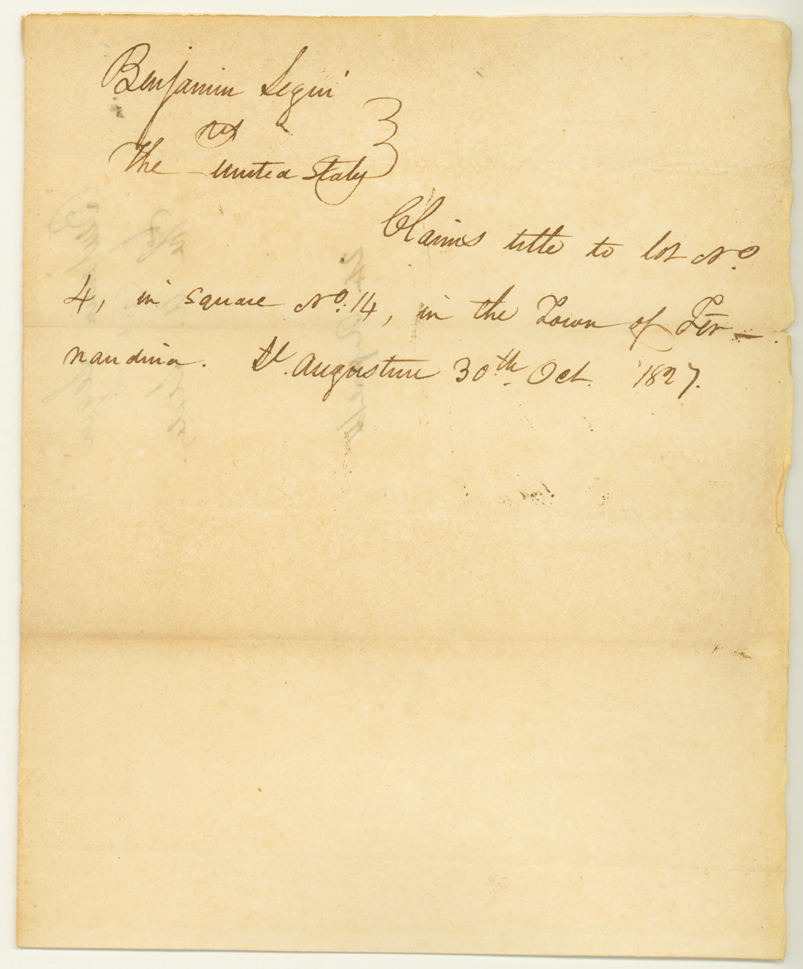 Benjamin Segui
vs
The United States
Claims title to lot No.
4, in square No. 14, in the Town of Fer-
nandina. St. Augustine 30th Oct. 1827.